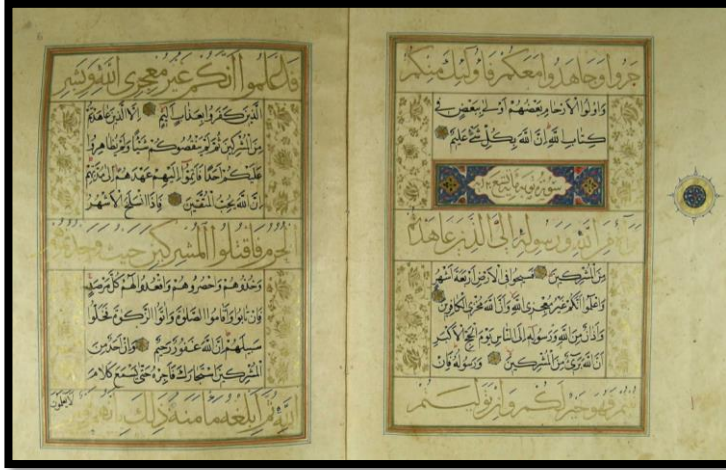 جروا وجاهدوا معكم فاولئك منكم
واولوا الارحام بعضهم اولى ببعض في
كتاب الله ان الله بكل شئ عليم
سورة
براءة من الله ورسوله الى الذين عاهدتم
من المشركين فسيحوا في الارض اربعة اشهر
واعلموا انكم غير معجزي الله وان الله مخزي الكافرين
واذان من الله ورسوله الى الناس يوم الحج الاكبر
ان الله بريء من المشركين ورسوله فان
تبتم فهو خير لكم وان توليتم
فاعلموا انكم غير معجزي الله وبشر
الذين كفروا بعذاب اليم الا الذين عاهدتم
من المشركين ثم لم ينقصوكم شيئا ولم يظاهروا
عليكم احدا فاتموا اليهم عهدهم الى مدتهم
ان الله يحب المتقين فاذا انسلخ الاشهر
الحرم فاقتلوا المشركين حيث وجدتموهم
وخذوهم واحصروهم واقعدوا لهم كل مرصد
فان تابوا واقاموا الصلوة واتوا الزكوة فخلوا
سبيلهم ان الله غفور رحيم وان احد من
المشركين استجارك فاجره حتى يسمع كلام
الله ثم ابلغه مأمنه ذلك بانهم قوم
لا يعلمون